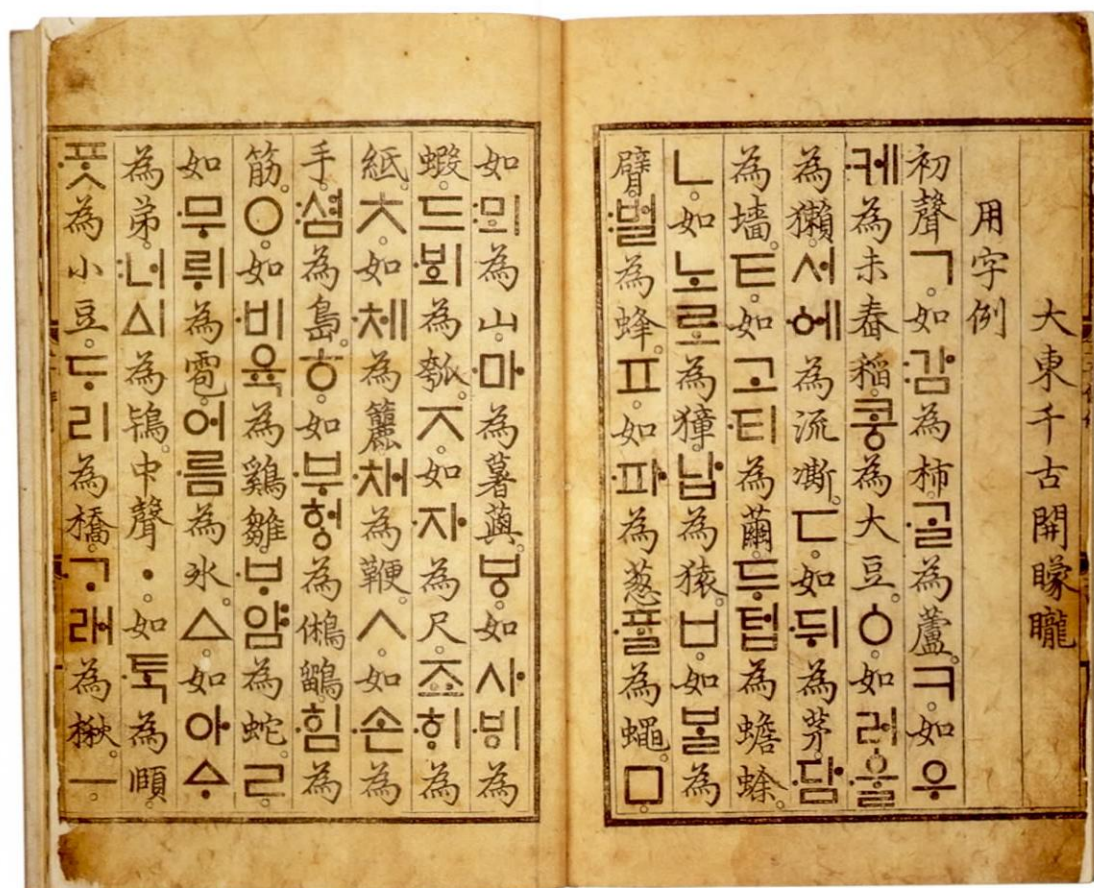 大東千古開矇矓
用字例
初聲ㄱ。如:감為柿。·ᄀᆞᆯ為蘆。ㅋ。如우
·케為未舂稻。콩為大豆。ㆁ。如러·ᅌᅮᆯ
為獺。서·ᅌᅦ為流凘。ㄷ。如·뒤為茅。·담
為墻。ㅌ。如고·티為繭。두텁為蟾蜍。
ㄴ。如노로為獐。납為猿。ㅂ。如ᄇᆞᆯ為
臂。:벌為蜂。ㅍ。如·파為葱。·ᄑᆞᆯ為蠅。ㅁ。
如:뫼為山。·마為薯藇。ㅸ。如사·ᄫᅵ為
蝦。드·ᄫᅴ為瓠。ㅈ。如·자為尺。죠·ᄒᆡ為
紙。ㅊ。如·체為籭。·채為鞭。ㅅ。如·손為
手。:셤為島。ㅎ。如·부헝為鵂鶹。·힘為
筋。ㅇ。如·비육為鷄雛。·ᄇᆞ얌為蛇。ㄹ。
如·무뤼為雹。어·름為氷。ㅿ。如아ᅀᆞ
為弟。:너ᅀᅵ為鴇。中聲ㆍ。如·ᄐᆞᆨ為頤。
·ᄑᆞᆺ為小豆。ᄃᆞ리為橋。·ᄀᆞ래為楸。ㅡ。